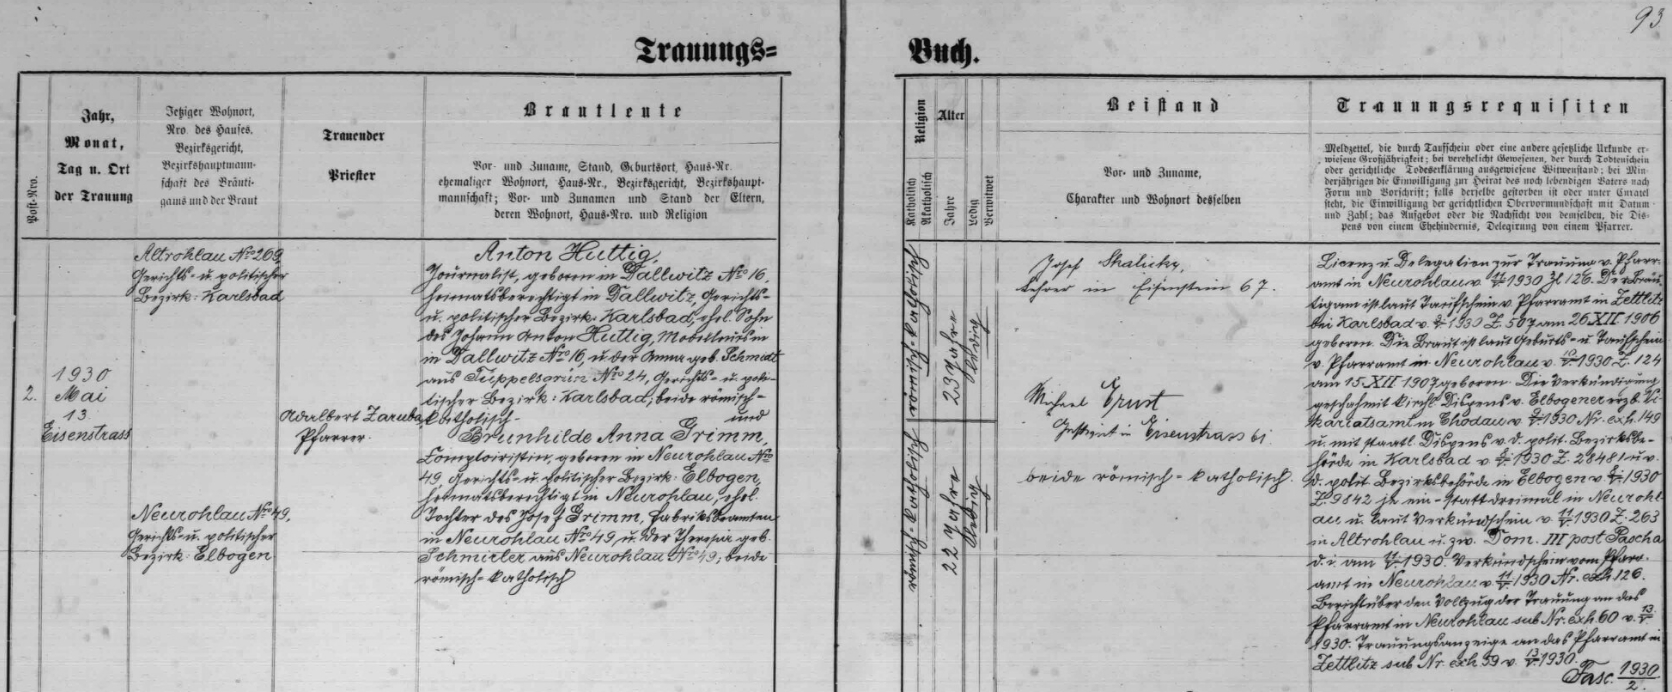 93
Trauungs=
Buch.
Post-Nro.
Jahr,
Monat,
Tag u. Ort
der Trauung
Jetziger Wohnort,
Nro. des Hauses,
Bezirksgericht,
Bezirkshauptmann-
schaft des Bräuti-
gams und der Braut
Trauender
Priester
Brautleute
Vor- und Zuname, Stand, Geburtsort, Haus-Nr.
ehemaliger Wohnort, Haus-Nr., Bezirksgericht, Bezirkshaupt-
mannschaft; Vor- und Zunamen und Stand der Eltern,
deren Wohnort, Haus-Nro. und Religion
Religion
Katholisch
Akatholisch
Alter
Jahre
Ledig
Verwitwet
Beistand
Vor- und Zuname,
Charakter und Wohnort desselben
Trauungsrequisiten
Meldzettel, die durch Taufschein oder eine andere gesetzliche Urkunde er-
wiesene Großjährigkeit; bei verehelicht Gewesenen, der durch Todtenschein
oder gerichtliche Todeserklärung ausgewiesene Witwenstand; bei Min-
derjährigen die Einwilligung zur Heirat des noch lebendigen Vaters nach
Form und Vorschrift; falls derselbe gestorben ist oder unter Curatel
steht, die Einwilligung der gerichtlichen Obervormundschaft mit Datum
und Zahl; das Aufgebot oder die Nachsicht von demselben, die Dis-
pens von einem Ehehindernis, Delegirung von einem Pfarrer.
2.
1930
Mai
13.
Eisenstrass
Altrohlau No 269
Gerichts- u. politischer
Bezirk: Karlsbad
Neurohlau No 49,
Gerichts- u. politischer
Bezirk: Elbogen
Adalbert Zaruba,
Pfarrer.
Anton Huttig,
Journalist, geboren in Dallwitz No 16,
heimatsberechtigt in Dallwitz, Gerichts-
u. politischer Bezirk: Karlsbad, ehel. Sohn
des Johann Anton Huttig, Modelleurs in
in Dallwitz No 16, u. der Anna geb. Schmidt
aus Tüppelsgrün No 24, Gerichts- u. poli-
tischer Bezirk: Karlsbad; beide römisch-
katholisch- und
Brunhilde Anna Grimm,
Comptoiristin, geboren in Neurohlau No
49, Gerichts- u. politischer Bezirk: Elbogen,
heimatsberechtigt in Neurohlau, ehel.
Tochter des Josef Grimm, Fabriksbeamten
in Neurohlau No 49 u. der Theresia geb.
Schmirler aus Neurohlau No 49; beide
römisch-katholisch
römisch-katholisch
23 Jahre
ledig
römisch-katholisch
22 Jahre
ledig
Josef Skalicky,
Lehrer in Eisenstein 67.
Michael Ernst
in Eisenstrass 61
beide römisch-katholisch.
Licenz u. Delegation zur Trauung v. Pfarr-
amt in Neurohlau v. 11/V 1930 Zl 126. Der Bräu-
tigam ist laut Taufschein v. Pfarramt in Zettlitz
bei Karlsbad v. 1930 Z. 507 am 26 XII 1906
geboren. Die Braut ist laut Geburts- u. Taufschein
v. Pfarramt in Neurohlau v. 1930 Z. 124
am 15. XII 1907 geboren. Die Verkündigung
geschah mit kirchl. Dispens v. Elbogener erzb. Vi-
kariatsamt in Chodau v. 1930 Nr. exh. 149
u. mit staatl. Dispens v. d. polit. Bezirksbe-
hörde in Karlsbad v. 1930 Z. 28481 u. v.
d. polit. Bezirksbehörde in Elbogen v. 1930
Z. 9842 je ein- statt dreimal in Neurohl-
au u. laut Verkündschein v. 11/V 1930 Z. 263
in Altrohlau u. zw. Dom. III post Pascha
d. i. am 1930. Verkündschein vom Pfarr-
amt in Neurohlau v. 11/V 1930 Nr. exh 126.
Bericht über den Vollzug der Trauung an das
Pfarramt in Neurohlau sub Nr. exh 60 v. 13/V
1930. Trauungsanzeige an das Pfarramt in
Zettlitz sub Nr. exh 59 v. 13/V 1930.
Fasc. 1930/2.